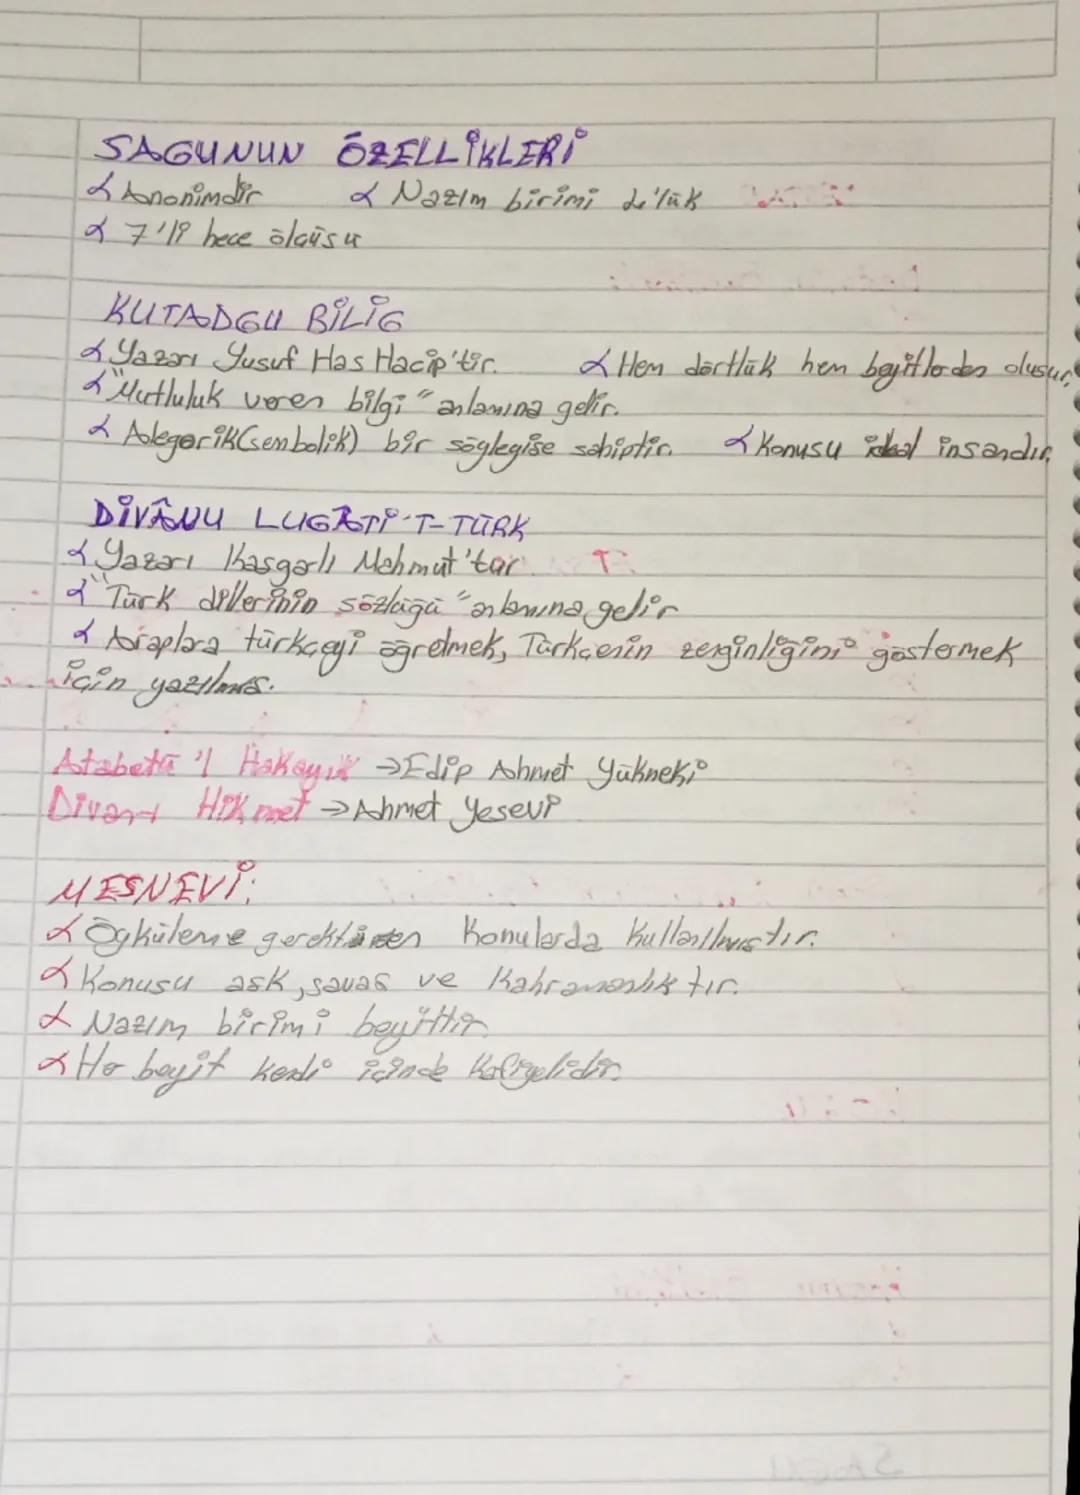 SAGUNUN ÖZELLİKLERİ
Anonimdir Nazım birimi d.'lük
7'li hece ölçüsü
KUTADGU BİLİG
Yazarı Yusuf Has Hacip'tir. Hem dörtlük hem beyitlerden oluşur.
"Mutluluk veren bilgi" anlamına gelir.
Alegorik(sembolik) bir söyleyişe sahiptir. Konusu ideal insandır.
DİVÂNU LUGÂTİ'T-TÜRK
Yazarı Kaşgarlı Mahmut'tur
"Türk dillerinin sözlüğü" anlamına gelir
Araplara türkçeyi öğretmek, Türkçenin zenginliğini göstermek
için yazılmış.
Atabetü'l Hakayık → Edip Ahmet Yükneki
Divanı Hikmet → Ahmet Yesevi
MESNEVİ:
Öyküleme gerektiren konularda kullanılmıştır.
Konusu aşk, savaş ve kahramanlıktır.
Nazım birimi beyittir.
Her beyit kendi içinde kafiyelidir.